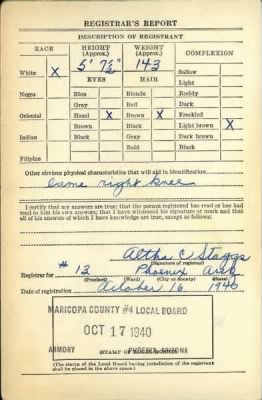 REGISTRAR'S REPORT
DESCRIPTION OF REGISTRANT
RACE HEIGHT (Approx.) WEIGHT (Approx.) COMPLEXION
White X 5' 7½" 143 Sallow
EYES HAIR Light
Negro Blue Blonde Ruddy
Gray Red Dark
Oriental Hazel X Brown X Freckled
Brown Black Light brown X
Indian Black Gray Dark brown
Bald Black
Filipino
Other obvious physical characteristics that will aid in identification
Lame right knee
I certify that my answers are true; that the person registered has read or has had
read to him his own answers; that I have witnessed his signature or mark and that
all of his answers of which I have knowledge are true, except as follows:
Altha C Staggs
(Signature of registrar)
Registrar for #13 Phoenix Ariz
(Precinct) (Ward) (City or county) (State)
Date of registration October 16 1940
MARICOPA COUNTY #4 LOCAL BOARD
OCT 17 1940
ARMORY PHOENIX, ARIZONA
STAMP OF LOCAL BOARD
(The stamp of the Local Board having jurisdiction of the registrant
shall be placed in the above space.)